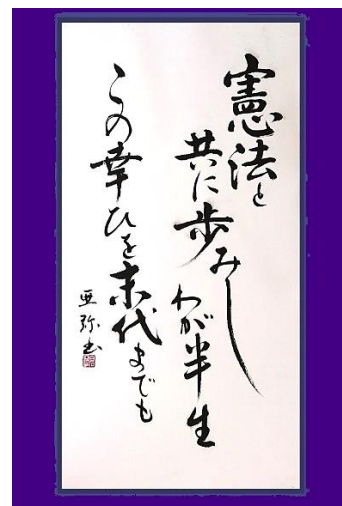 憲法と
共に歩みし
わが半生
この幸ひを末代までも
亜弥書